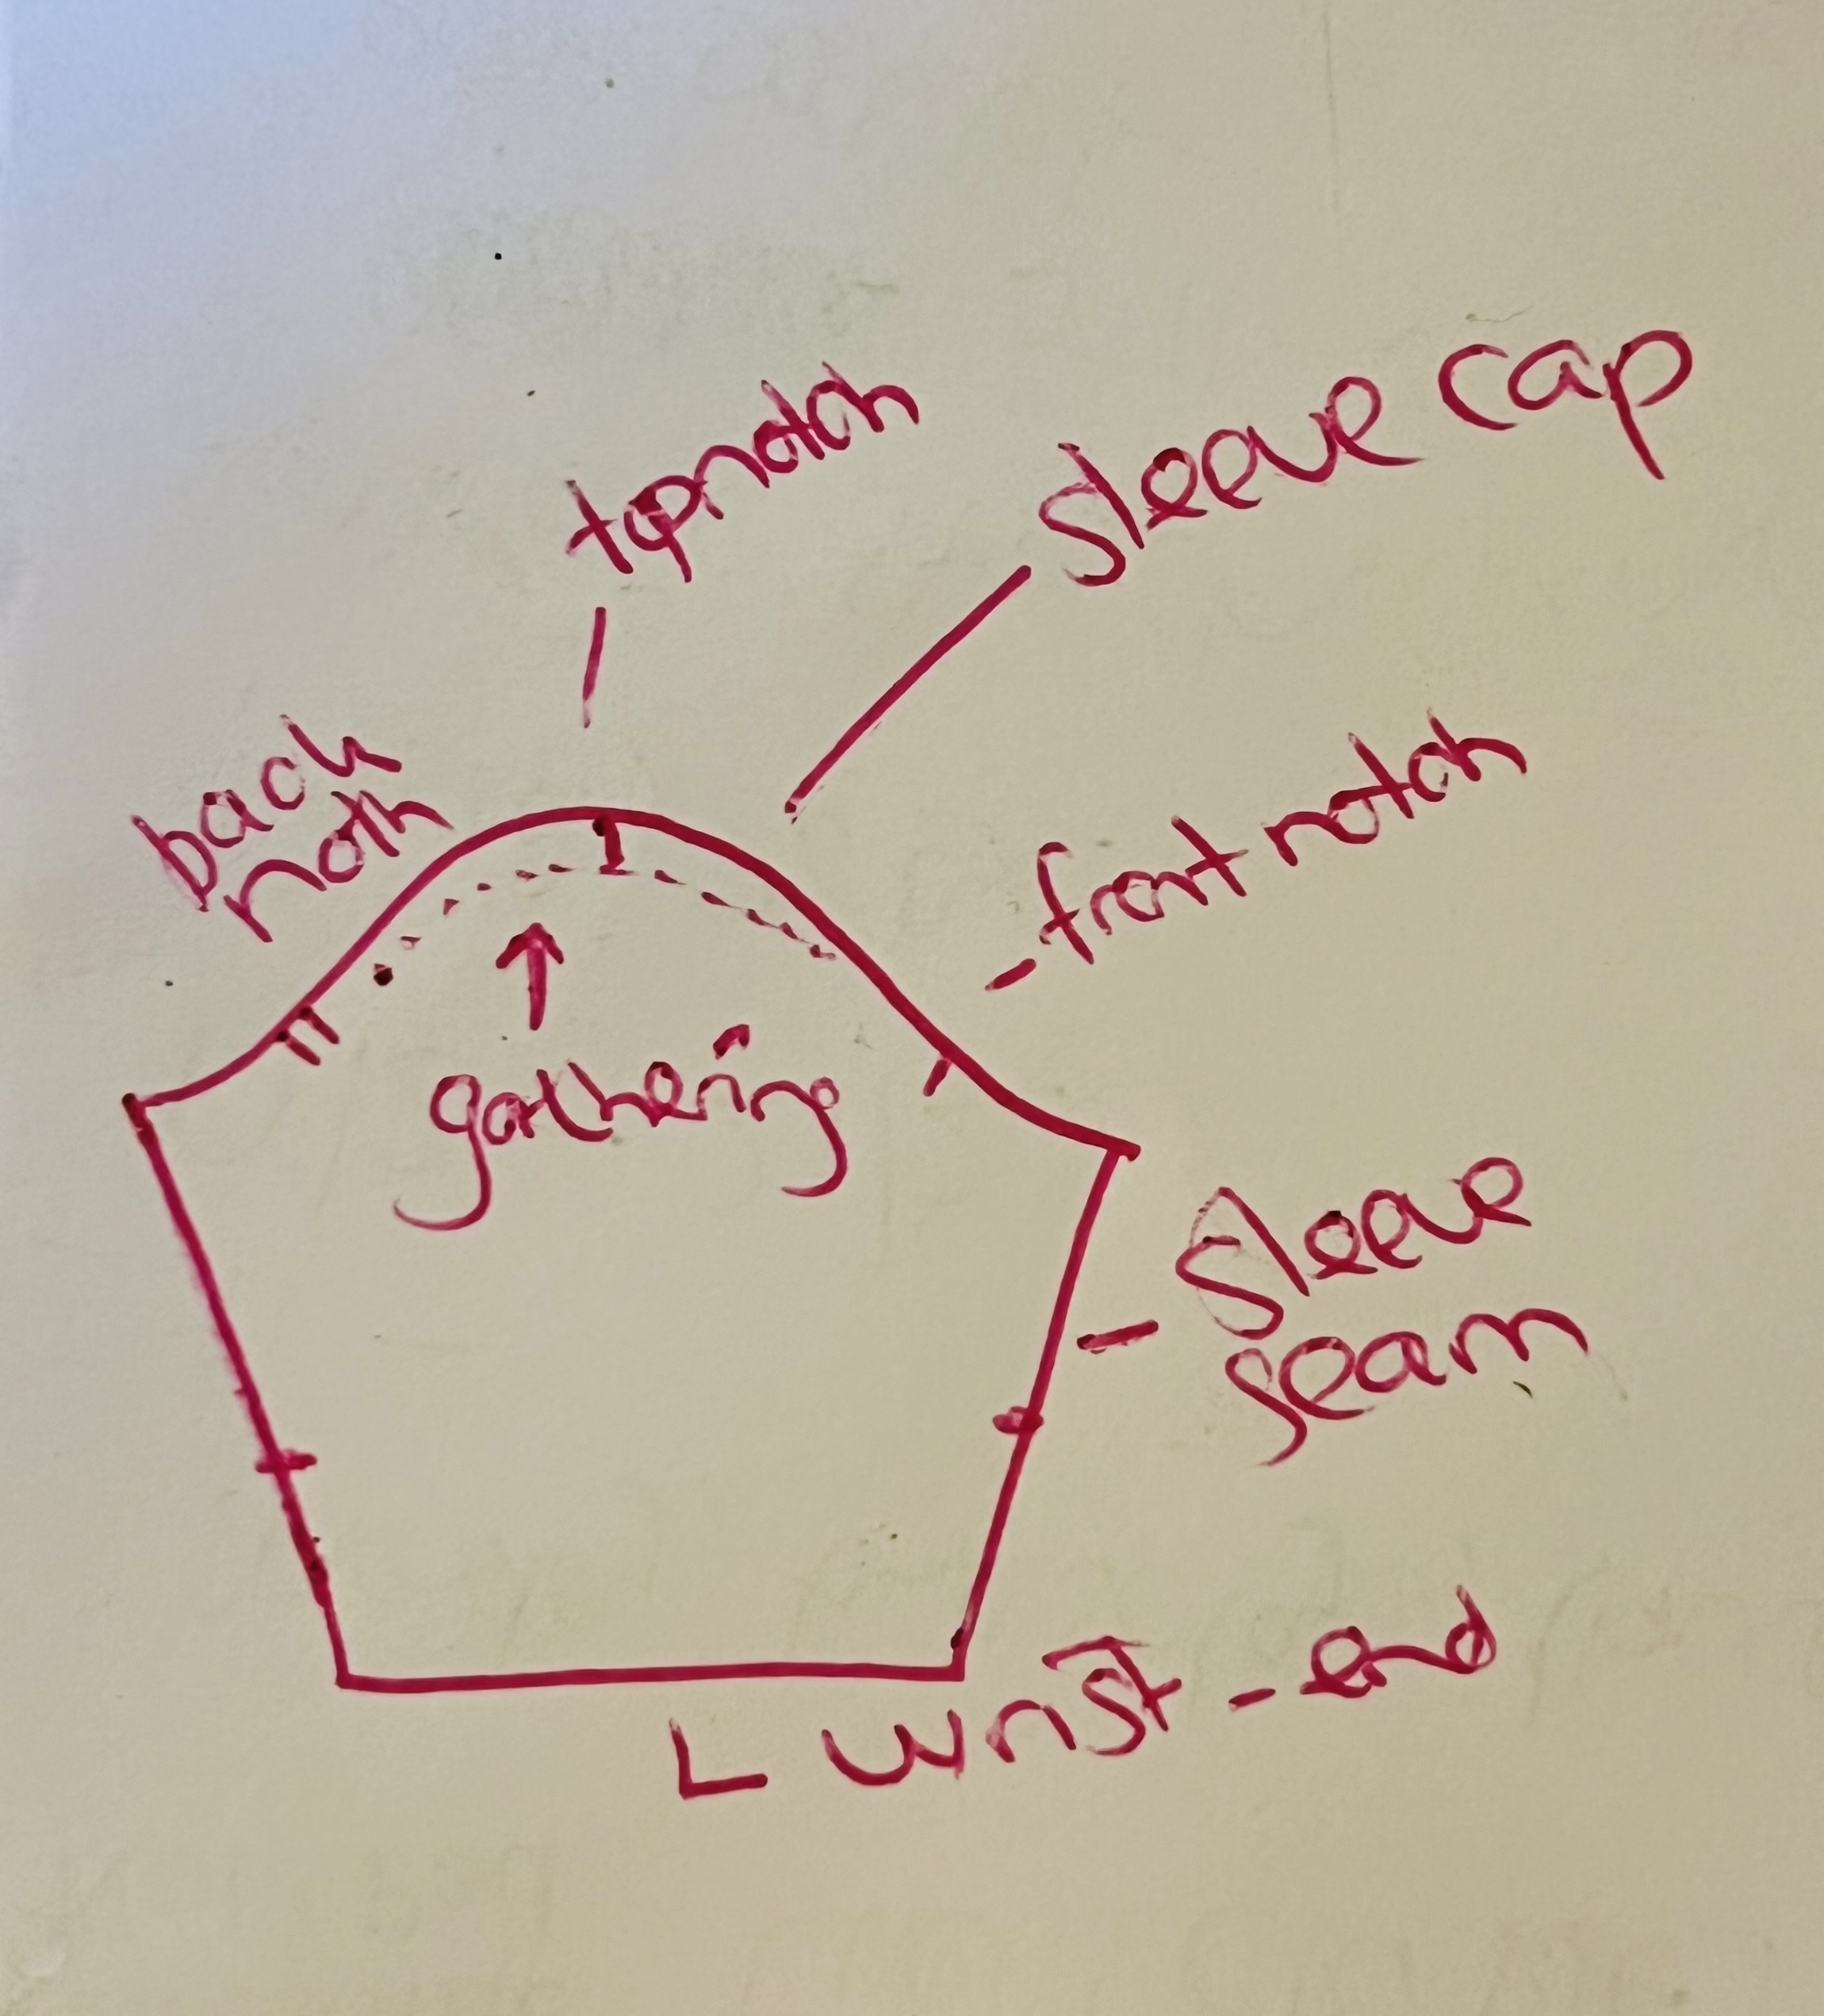 topnotch
sleeve cap
back
noth
- front notch
gathering
sleeve
seam
wrist - end